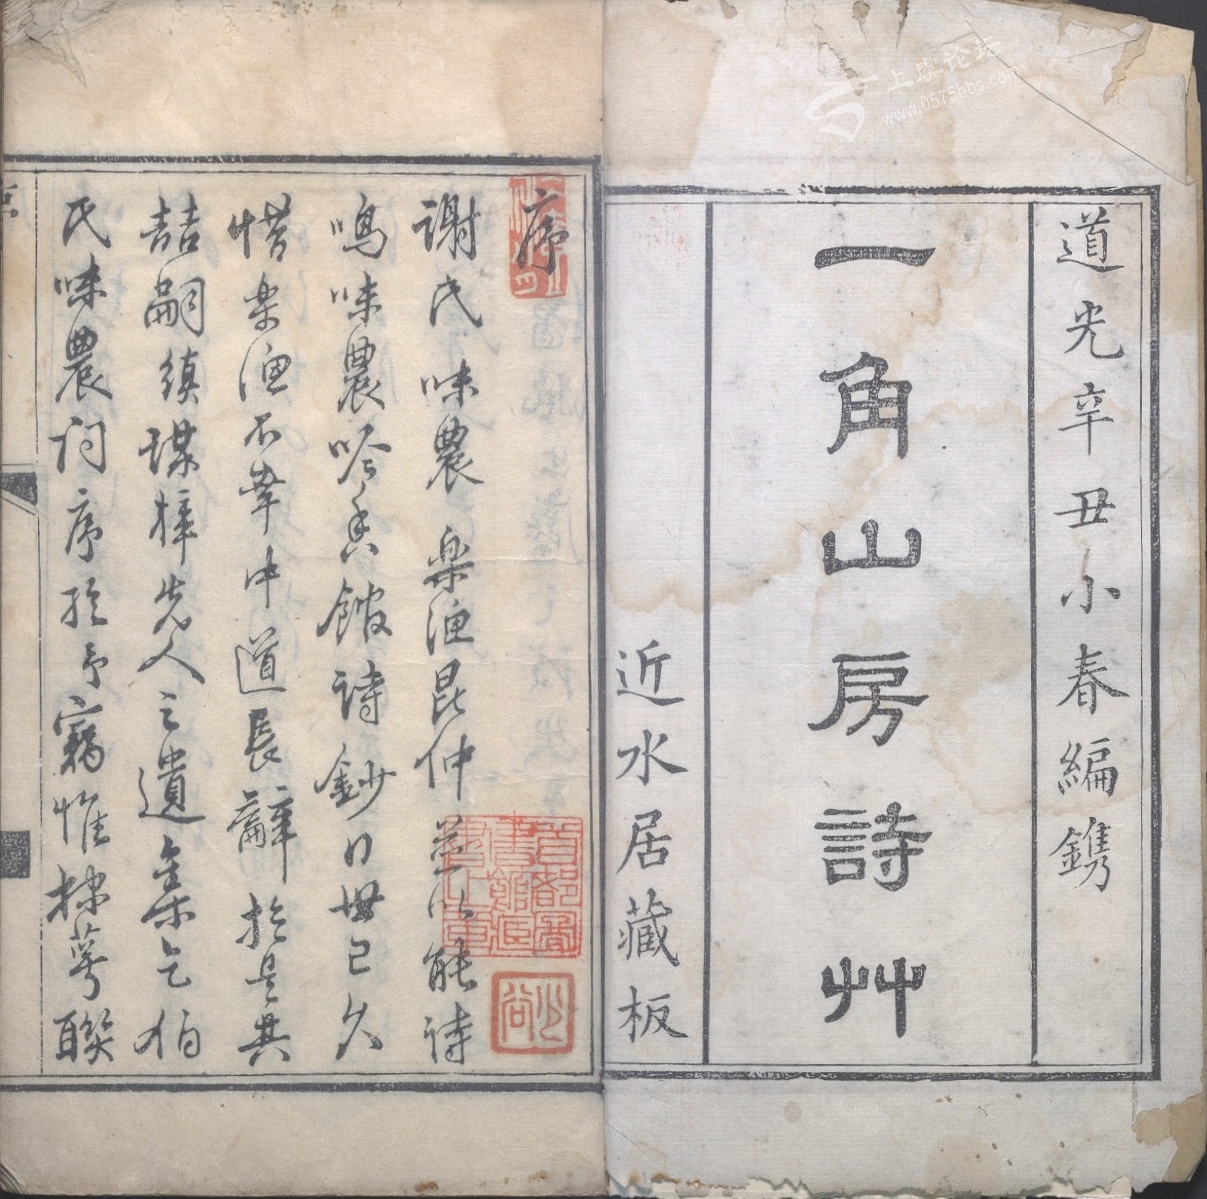 道光辛丑小春編鐫
一角山房詩艸
近水居藏板
序
謝氏味農樂漁昆仲並以能詩
鳴味農吟香館詩鈔日毋已久
惜樂漁不幸中道長辭於是其
喆嗣鎮謀梓先人之遺集乞伯
氏味農問序於予竊惟棣萼聯
上虞论坛
www.0575bbs.com